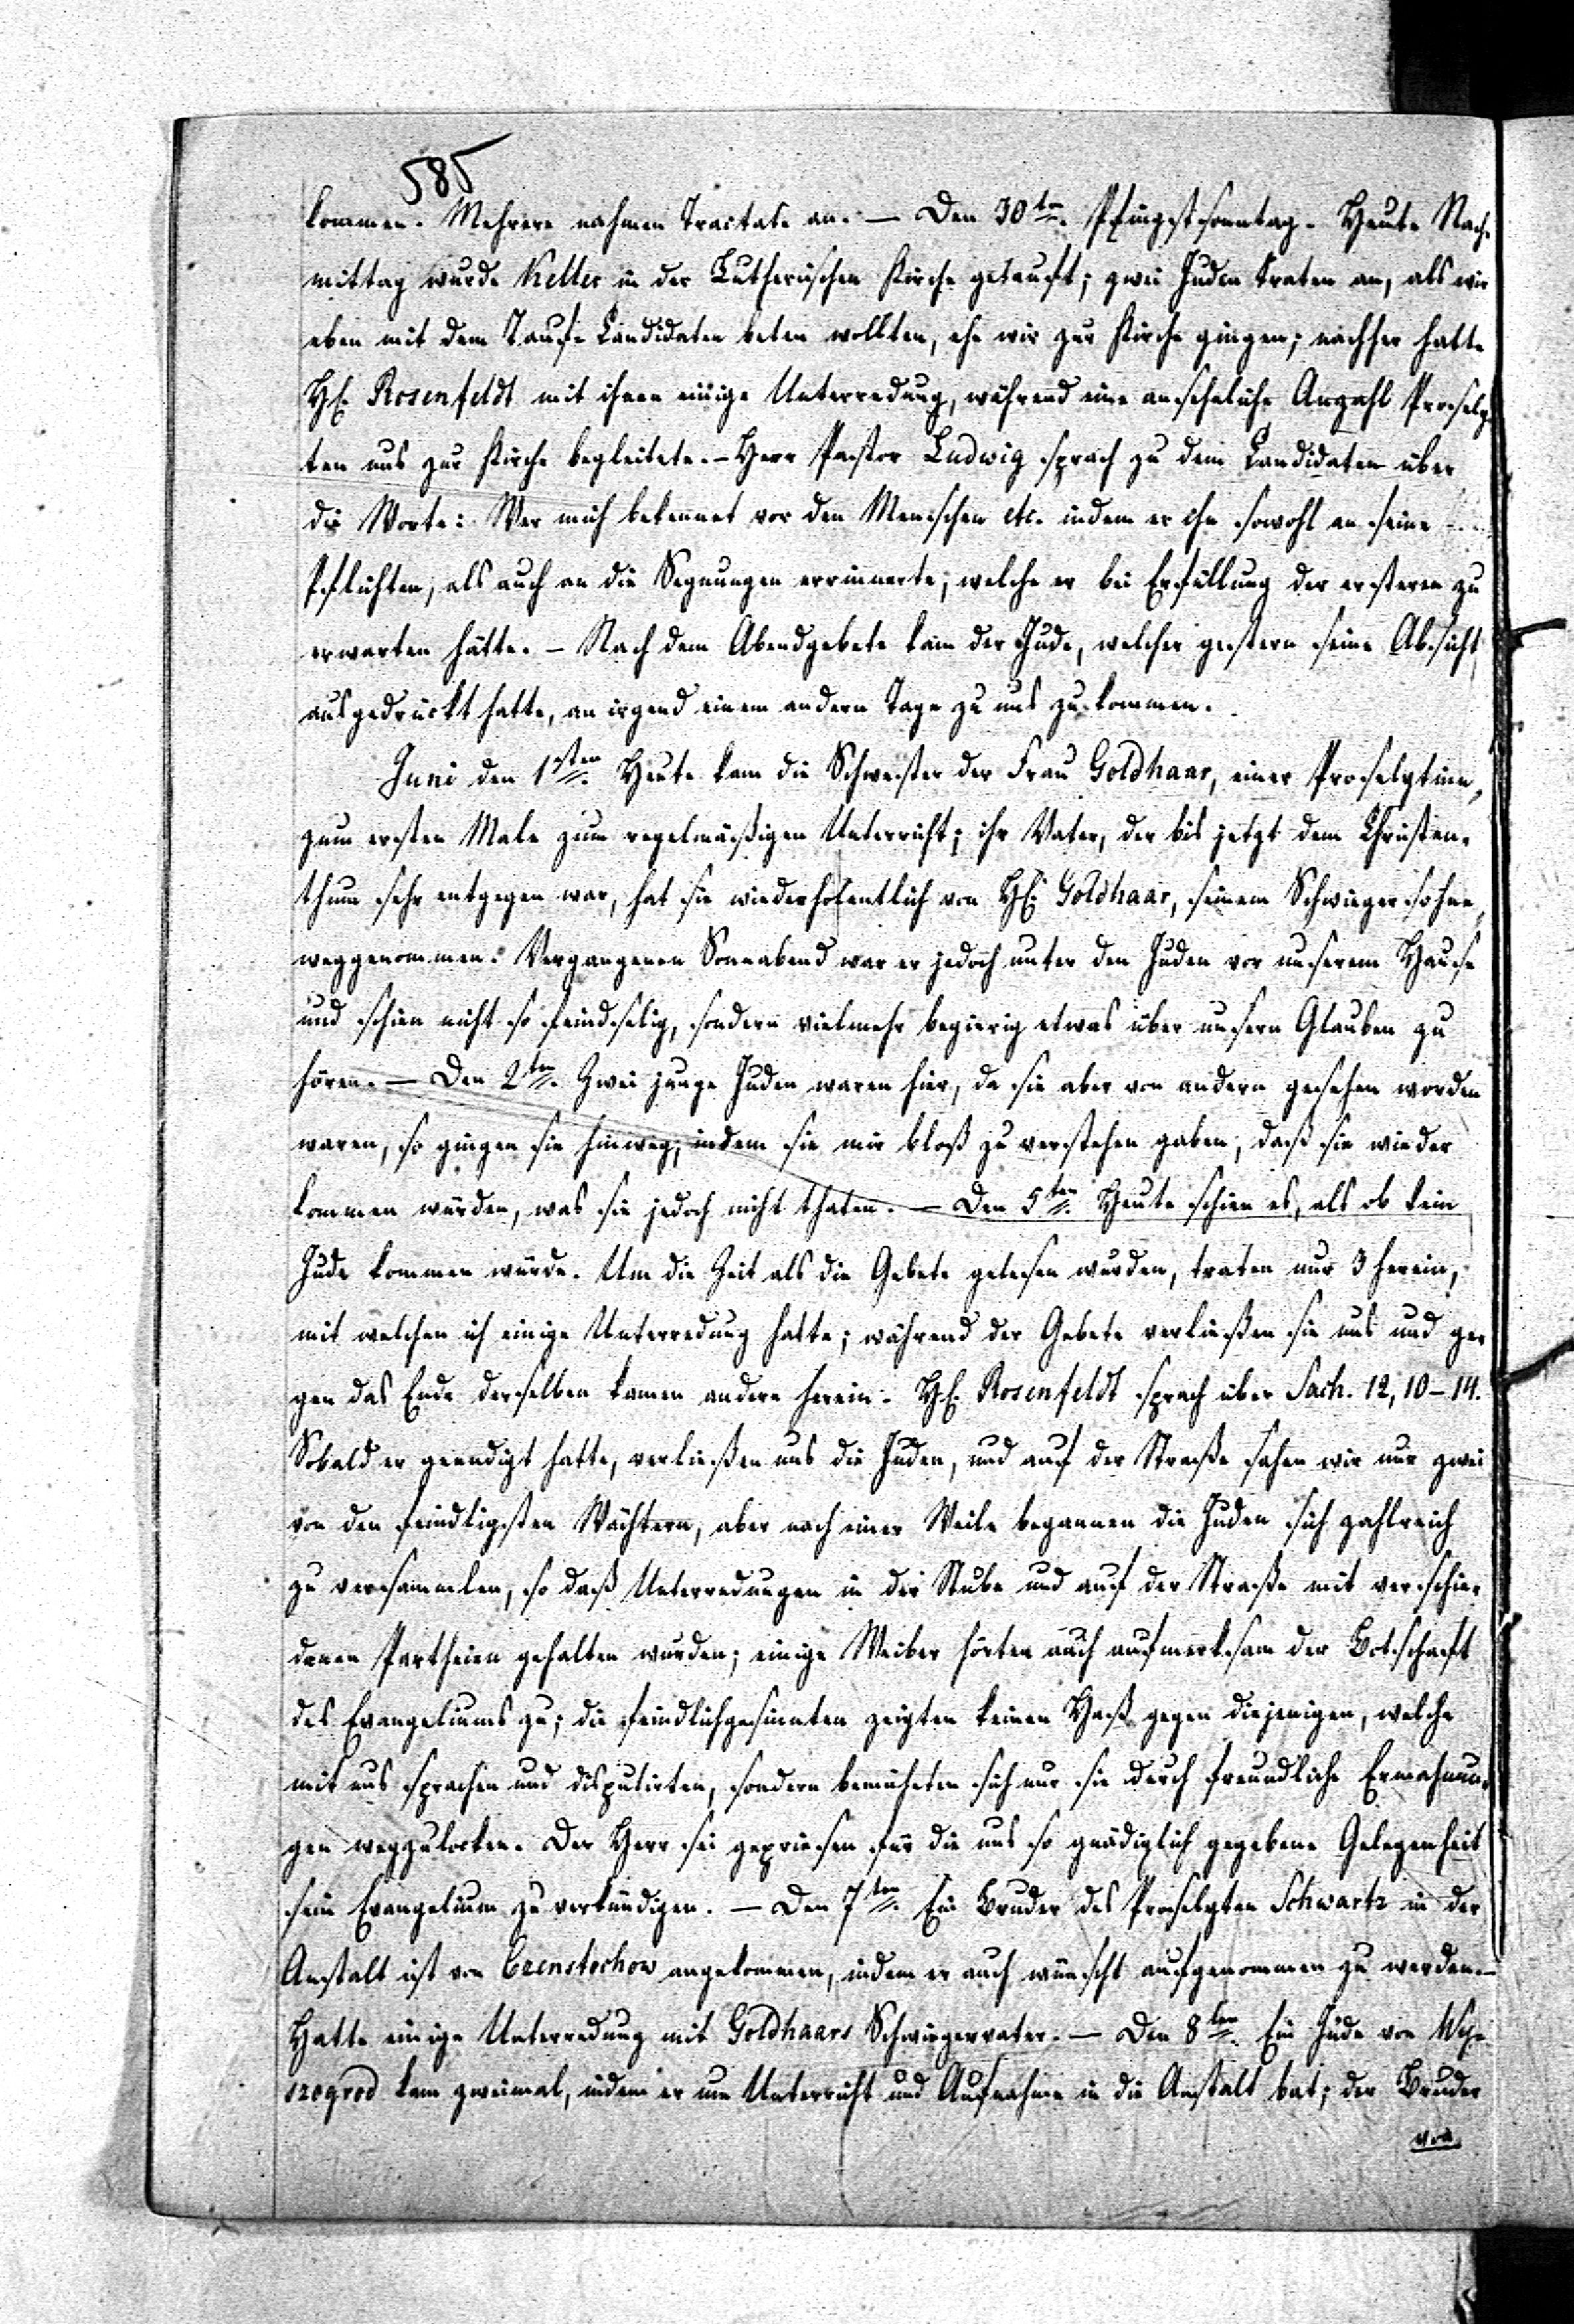 585
kommen. Mehrere nahmen Tractate an. — Den 30ten. Pfingstsonntag. Heute Nach-
mittag wurde Keller in der Lutherischen Kirche getauft; zwei Juden traten an, als wir
eben mit dem Tauf-Candidaten beten wollten, ehe wir zur Kirche gingen; nachher hatte
H. Rosenfeldt mit ihnen einige Unterredung, während eine ansehnliche Anzahl Prosely-
ten uns zur Kirche begleitete. – Herr Pastor Ludwig sprach zu dem Candidaten über
die Worte: Wer mich bekennet vor den Menschen etc. indem er ihn sowohl an seine
Pflichten, als auch an die Segnungen errinnerte, welche er bei Erfüllung der ersteren zu
erwarten hätte. – Nach dem Abendgebete kam der Jude, welcher gestern seine Absicht
ausgedrückt hatte, an irgend einem andern Tage zu uns zu kommen.
Juni den 1sten. Heute kam die Schwester der Frau Goldhaar, einer Proselytinn,
zum ersten Male zum regelmäßigen Unterricht; ihr Vater, der bis jetzt dem Christen-
thum sehr entgegen war, hat sie wiederholentlich von H. Goldhaar, seinem Schwiegersohne,
weggenommen. Vergangenen Sonnabend war er jedoch unter den Juden vor unserem Hause
und schien nicht so feindselig, sondern vielmehr begierig etwas über unsern Glauben zu
hören. — Den 2ten. Zwei junge Juden waren hier, da sie aber von andern gesehen worden
waren, so gingen sie hinweg, indem sie mir bloß zu verstehen gaben, daß sie wieder
kommen würden, was sie jedoch nicht thaten. — Den 5ten. Heute schien es, als ob kein
Jude kommen würde. Um die Zeit als die Gebete gelesen wurden, traten nur 3 herein,
mit welchen ich einige Unterredung hatte; während der Gebete verließen sie uns und ge-
gen das Ende derselben kamen andere herein. H. Rosenfeldt sprach über Sach. 12, 10–14.
Sobald er geendigt hatte, verließen uns die Juden, und auf der Straße sahen wir nur zwei
von den feindligsten Wächtern, aber nach einer Weile begannen die Juden sich zahlreich
zu versammlen, so daß Unterredungen in der Stube und auf der Straße mit verschie-
denen Partheien gehalten wurden; einige Weiber hörten auch aufmerksam der Botschaft
des Evangeliums zu; die feindlichgesinnten zeigten keinen Haß gegen diejenigen, welche
mit uns sprachen und disputirten, sondern bemüheten sich nur sie durch freundliche Ermahnun-
gen wegzulocken. Der Herr sei gepriesen für die uns so gnädiglich gegebene Gelegenheit
sein Evangelium zu verkündigen. — Den 7ten. Ein Bruder des Proselyten Schwartz in der
Anstalt ist von Czenstochow angekommen, indem er auch wünscht aufgenommen zu werden. —
Hatte einige Unterredung mit Goldhaars Schwiegervater. — Den 8ten. Ein Jude von Wy-
szogrod kam zweimal, indem er um Unterricht und Aufnahme in die Anstalt bat; der Bruder
von